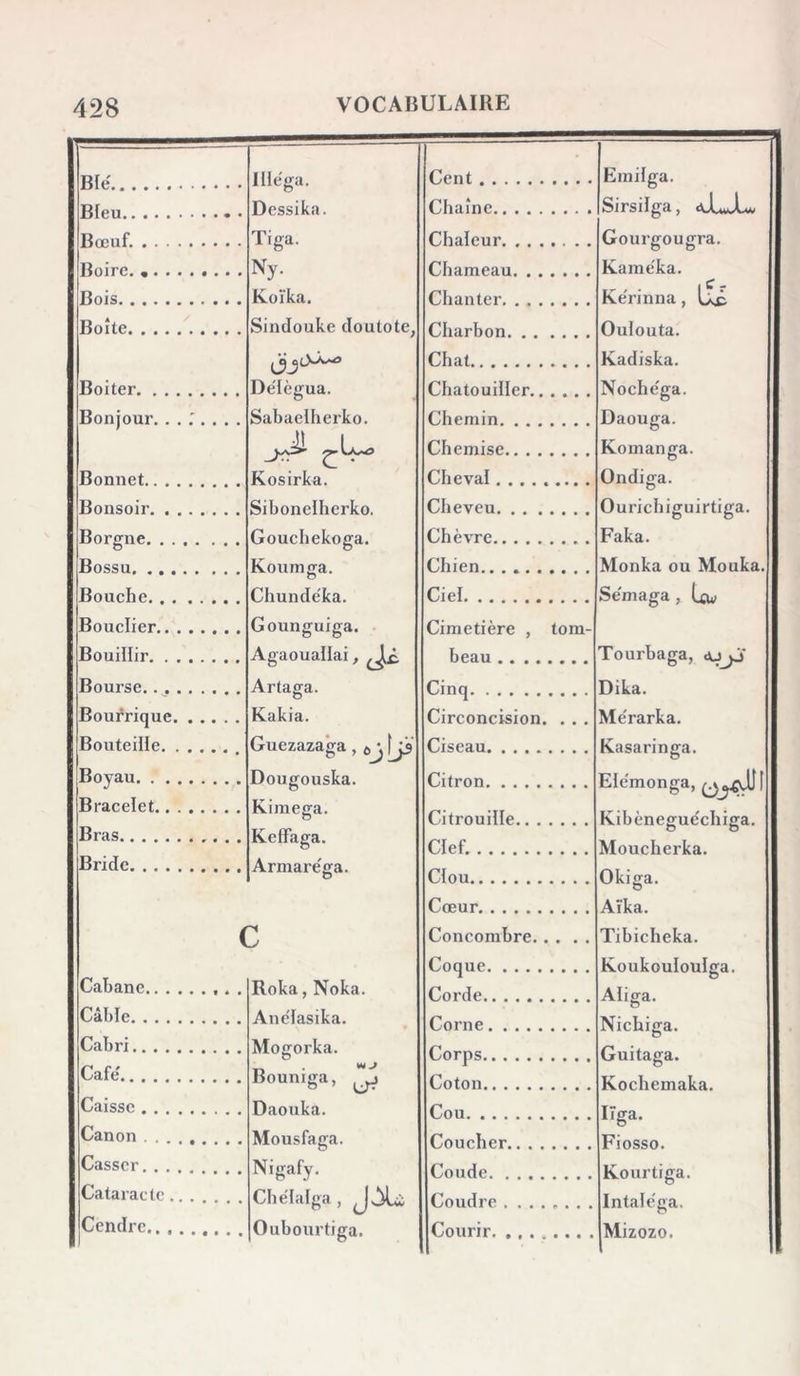 428 VOCABULAIRE
Blé............ Illéga.
Bleu........... Dessika.
Bœuf.......... Tiga.
Boire.......... Ny.
Bois........... Koïka.
Boîte.......... Sindouke doutote,
صندوق
Boiter......... Délègua.
Bonjour........ Sabaelherko.
صباح الخير
Bonnet......... Kosirka.
Bonsoir........ Sibonelherko.
Borgne......... Gouchekoga.
Bossu.......... Koumga.
Bouche......... Chundéka.
Bouclier....... Gounguiga.
Bouillir....... Agaouallai, غلى
Bourse......... Artaga.
Bourrique...... Kakia.
Bouteille...... Guezazaga, قزازه
Boyau.......... Dougouska.
Bracelet....... Kimega.
Bras........... Keffaga.
Bride.......... Armaréga.
C
Cabane......... Roka, Noka.
Câble.......... Anélasika.
Cabri.......... Mogorka.
Café........... Bouniga, بُنّ
Caisse......... Daouka.
Canon.......... Mousfaga.
Casser......... Nigafy.
Cataracte...... Chélalga, شلال
Cendre......... Oubourtiga.
Cent........... Emilga.
Chaîne......... Sirsilga, سلسله
Chaleur........ Gourgougra.
Chameau........ Kaméka.
Chanter........ Kérinna, غنّا
Charbon........ Oulouta.
Chat........... Kadiska.
Chatouiller.... Nochéga.
Chemin......... Daouga.
Chemise........ Komanga.
Cheval......... Ondiga.
Cheveu......... Ourichiguirtiga.
Chèvre......... Faka.
Chien.......... Monka ou Mouka.
Ciel........... Sémaga, سما
Cimetière, tom-
beau........ Tourbaga, تربه
Cinq........... Dika.
Circoncision.... Mérarka.
Ciseau......... Kasaringa.
Citron......... Elémonga, الليمون
Citrouille..... Kibèneguéchiga.
Clef........... Moucherka.
Clou........... Okiga.
Cœur........... Aïka.
Concombre..... Tibicheka.
Coque.......... Koukouloulga.
Corde.......... Aliga.
Corne.......... Nichiga.
Corps.......... Guitaga.
Coton.......... Kochemaka.
Cou............ Iïga.
Coucher........ Fiosso.
Coude.......... Kourtiga.
Coudre......... Intaléga.
Courir......... Mizozo.